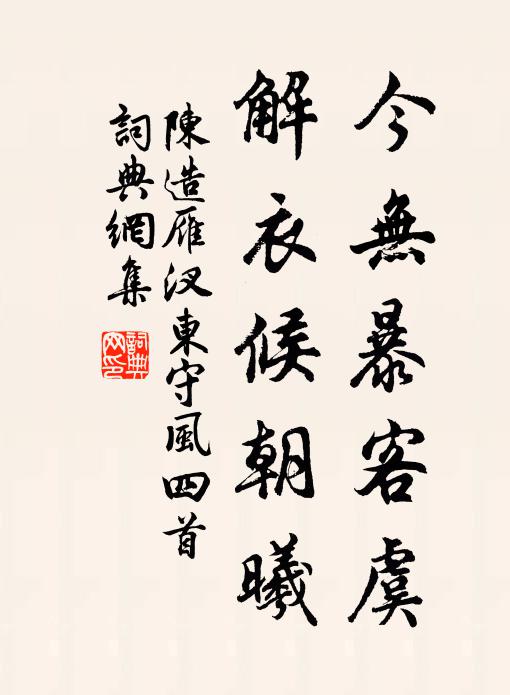 今無暴客虞
解衣候朝曦
陳造雁汊東守風四首
詞典網集
詞典網印